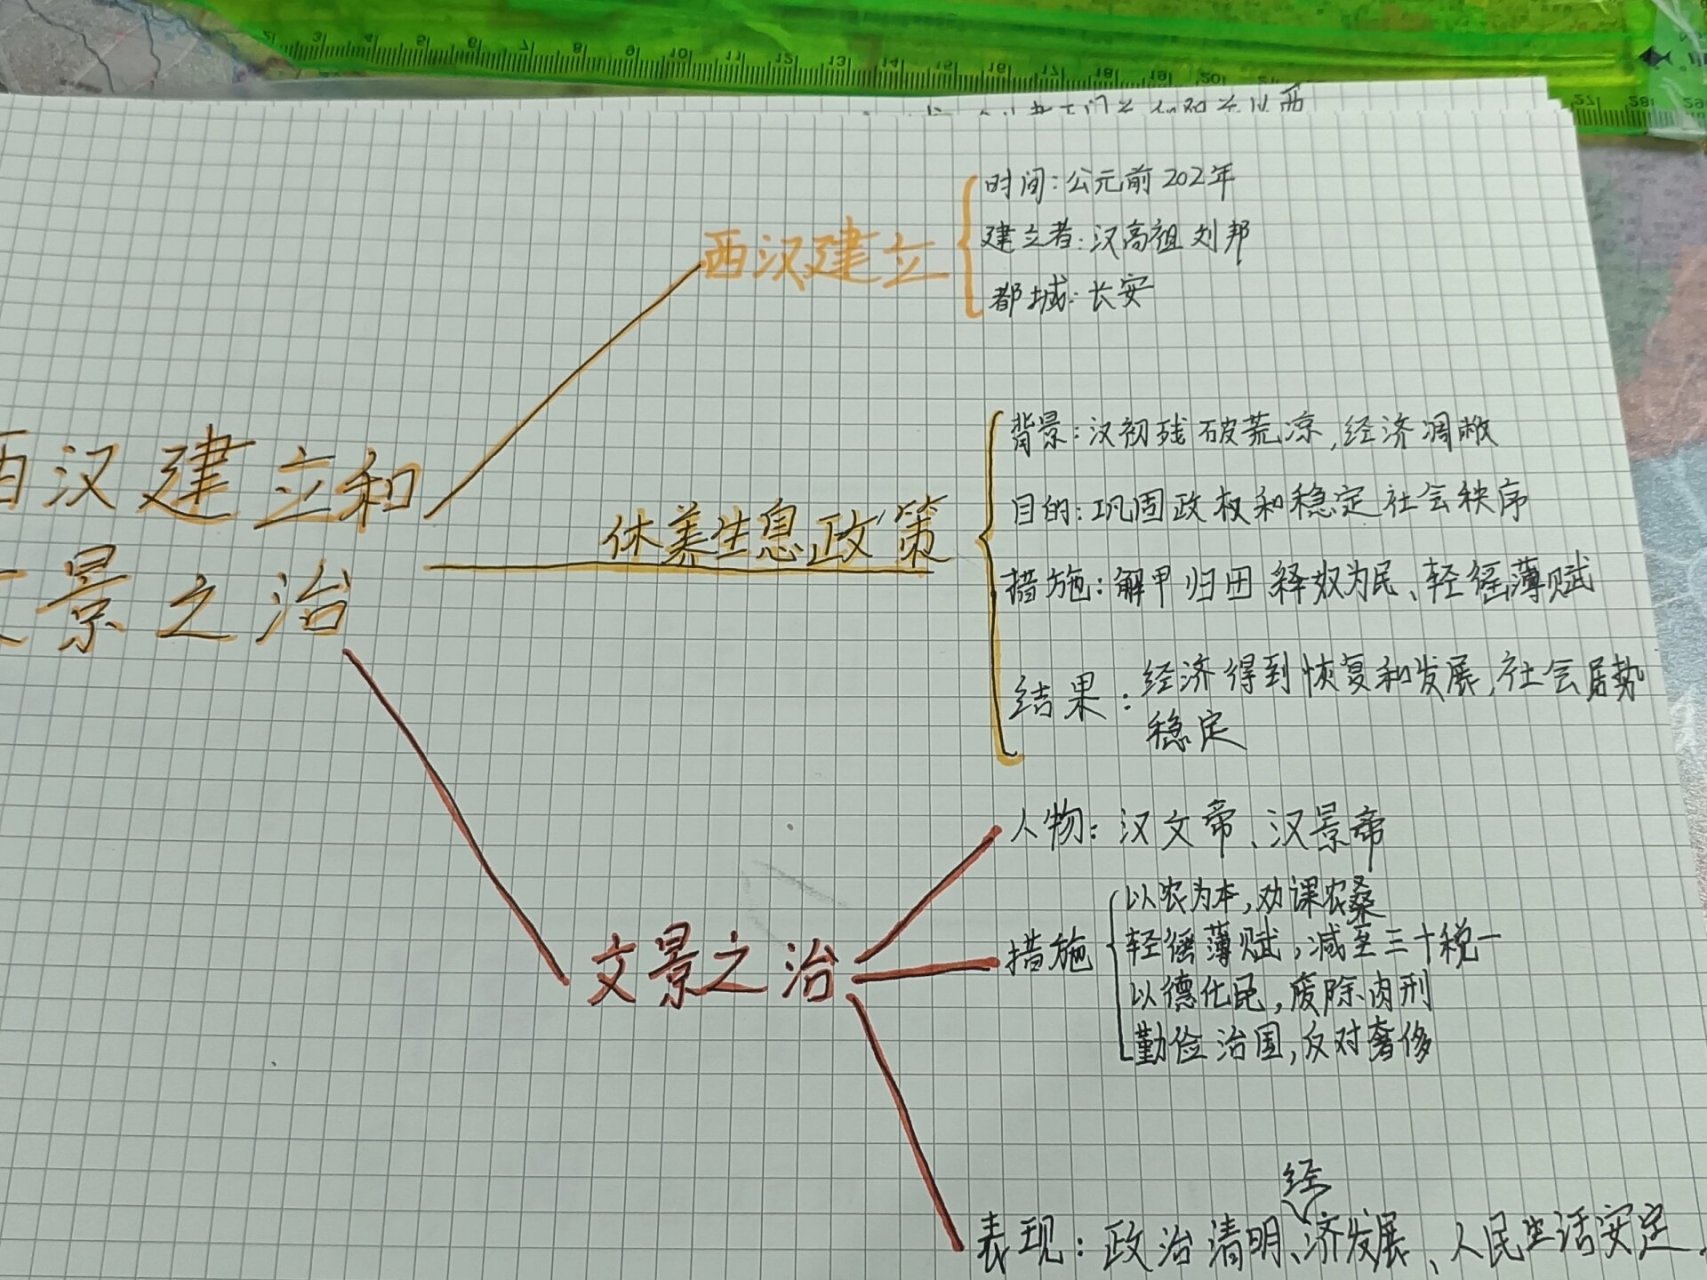 西汉建立和
文景之治
西汉建立
时间:公元前202年
建立者:汉高祖刘邦
都城:长安
休养生息政策
背景:汉初残破荒凉,经济凋敝
目的:巩固政权和稳定社会秩序
措施:解甲归田 释奴为民、轻徭薄赋
结果:经济得到恢复和发展,社会局势
稳定
文景之治
人物:汉文帝、汉景帝
措施
以农为本,劝课农桑
轻徭薄赋,减至三十税一
以德化民,废除肉刑
勤俭治国,反对奢侈
表现:政治清明、经济发展、人民生活安定